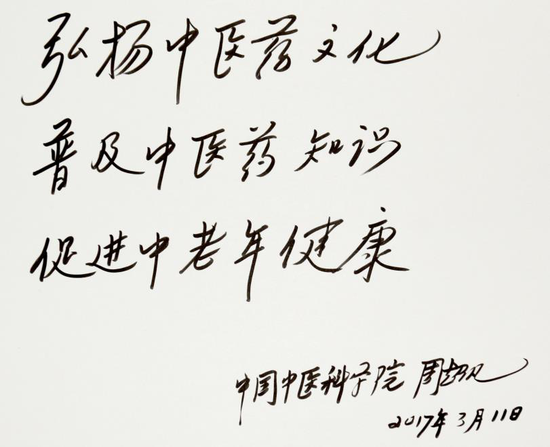 弘扬中医药文化
普及中医药知识
促进中老年健康
中国中医科学院 周超凡
2017年3月11日